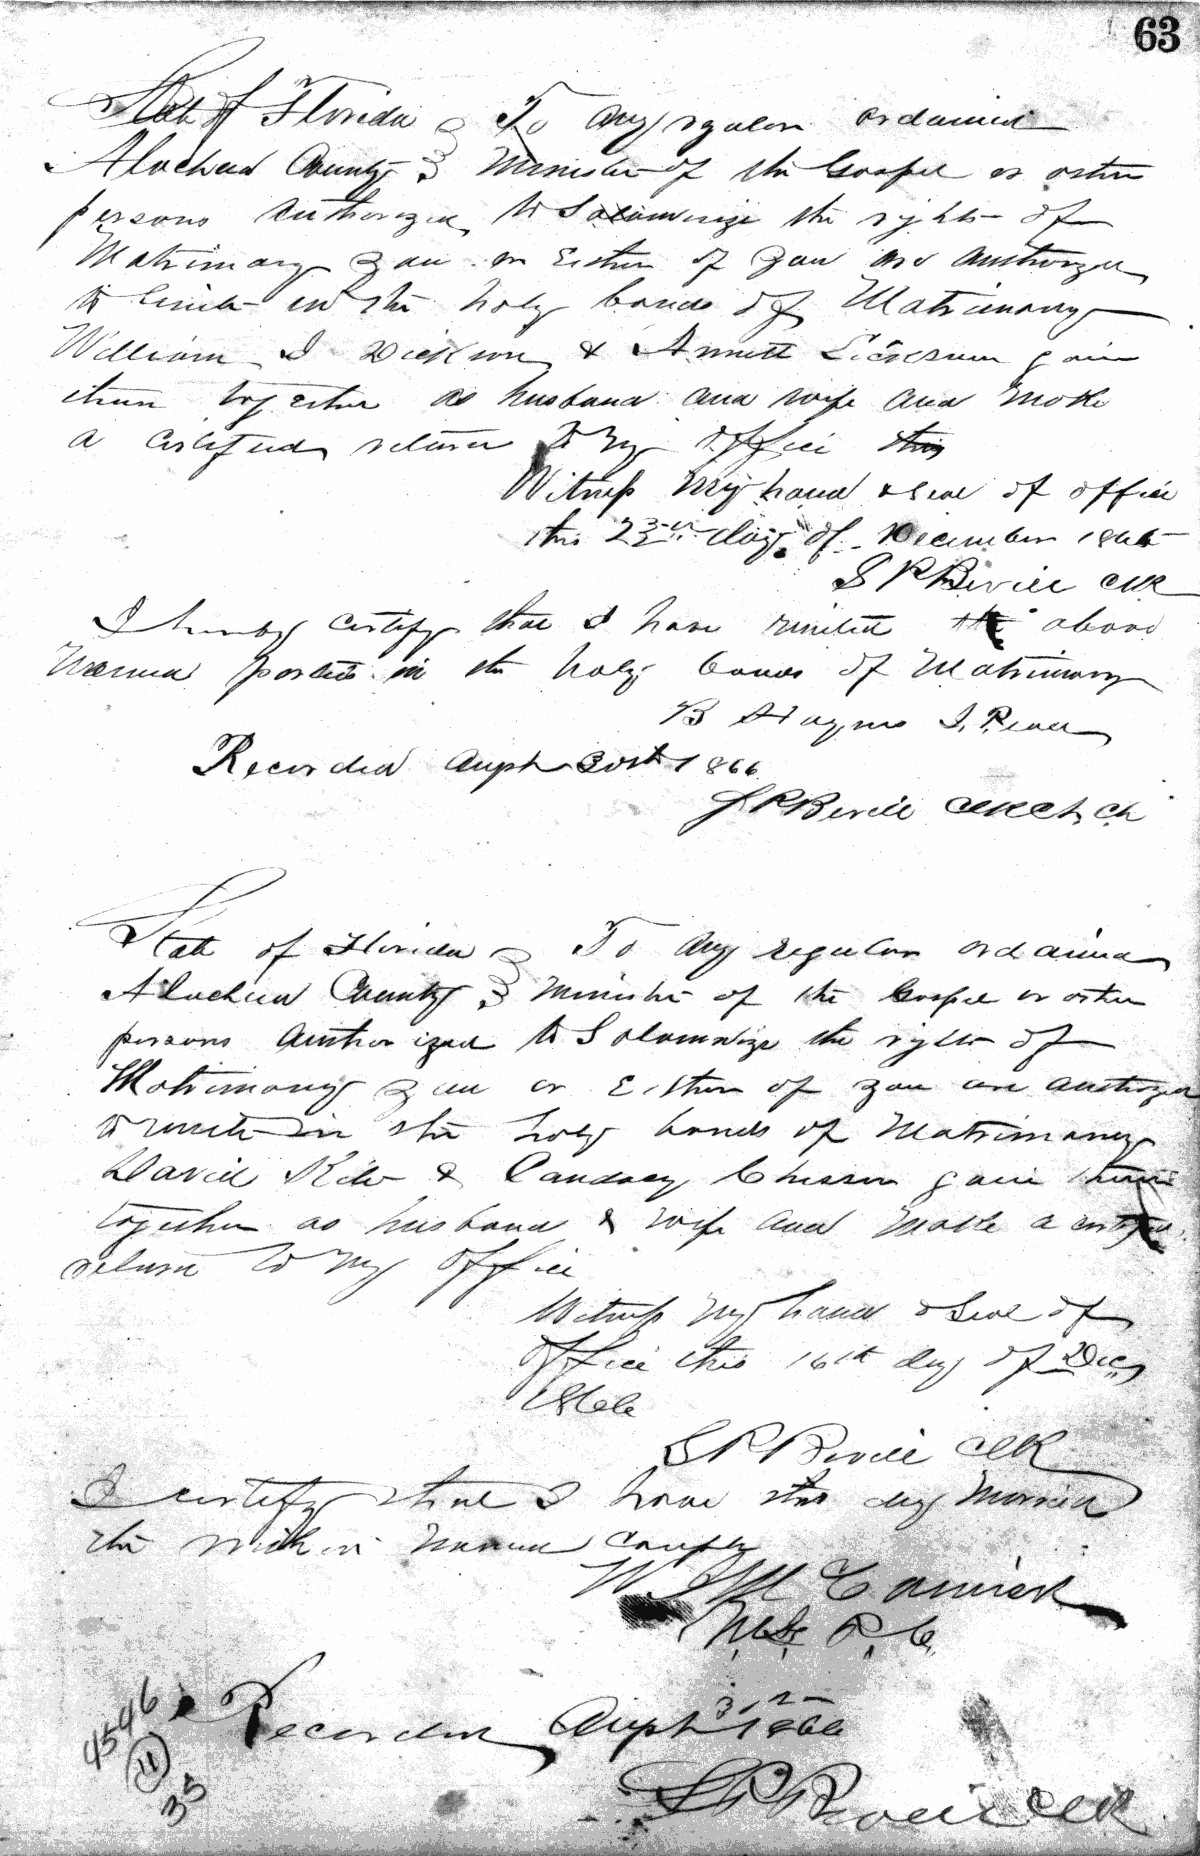 63
State of Florida } To any regular ordained
Alachua County } Minister of the Gospel or other
persons authorized to Solumnize the rights of
Matrimony you or Either of you are authorized
to Unite in the holy bonds of Matrimony
William J Dickson & Annett join
them together as husband and wife and make
a certified return to my office this
Witness My hand & Seal of office
this 23rd day of December 1866
S P Bevill Clk
I hereby certify that I have united the above
Named parties in the holy bonds of Matrimony
B
Recorded 30th 1866
S P Bevill Clk
State of Florida } To any regular ordained
Alachua County } Minister of the Gospel or other
persons authorized to Solumnize the rights of
Matrimony you or Either of you are authorized
to unite in the holy bonds of Matrimony
David & Candacy Chesson join them
together as husband & wife and make a certified
return to my office
Witness My hand & Seal of
office this 16th day of Dec,
1866
S P Bevill Clk
I certify that I have this day Married
the within Named Couple
W. J McCormick
Recorded 31st 1866
S P Bevill Clk
4546
11
35